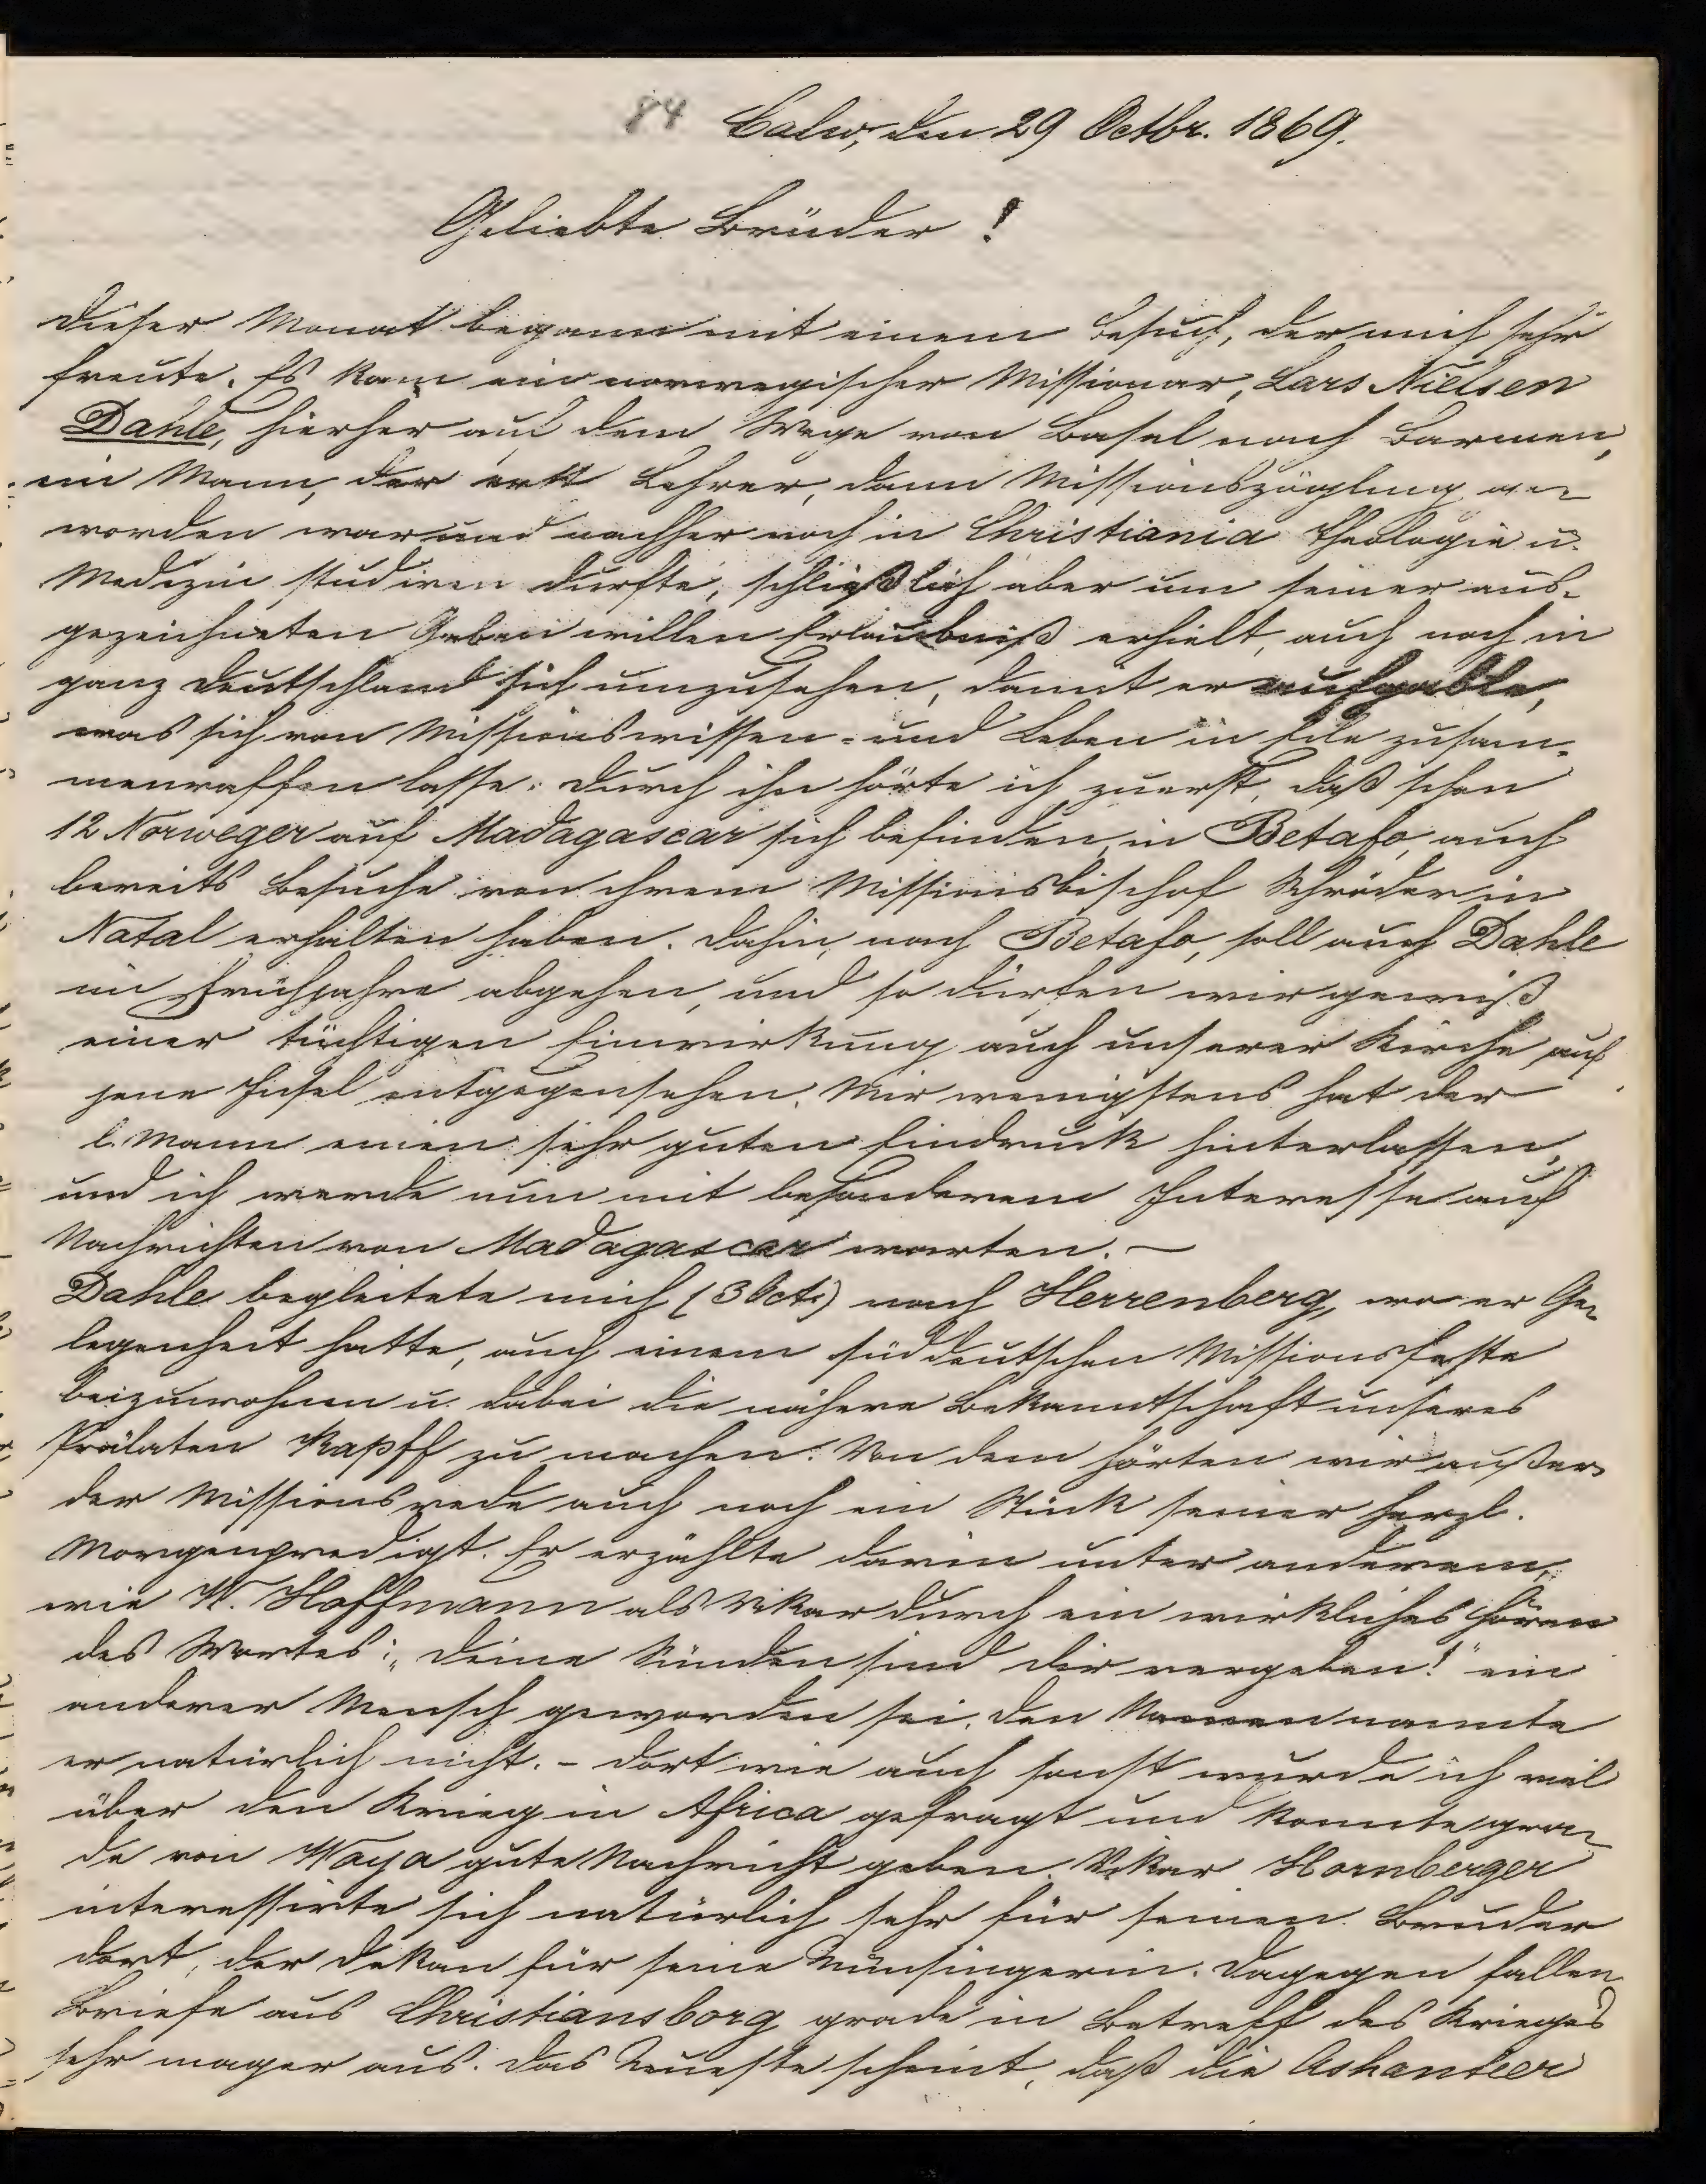 84 Calw, den 29 Octbr. 1869.
Geliebte Brüder!
Dieser Monat begann mit einem Besuch, der mich sehr
freute. Es kam ein norwegischer Missionar, Lars Nielsen
Dahle, hierher auf dem Wege von Basel nach Barmen,
ein Mann, der erst Lehrer, dann Missionszögling ge-
worden war und nachher noch in Christiania Theologie u.
Medizin studiren durfte, schließlich aber um seiner aus-
gezeichneten Gaben willen Erlaubniß erhielt, auch noch in
ganz Deutschland sich umzusehen, damit er
was sich von Missionswissen- und Leben in Eile zusam-
menraffen lasse. Durch ihn hörte ich zuerst, daß schon
12 Norweger auf Madagascar sich befinden, in Betafo, auch
bereits Besuche von ihrem Missionsbischof Schröder in
Natal erhalten haben. Dahin, nach Betafo, soll auch Dahle
im Frühjahre abgehen, und so dürfen wir gewiß
einer tüchtigen Einwirkung auch unserer Kirche auf
jene Insel entgegensehen. Mir wenigstens hat der
l. Mann einen sehr guten Eindruck hinterlassen,
und ich werde nun mit besonderem Interesse auf
Nachrichten von Madagascar warten. —
Dahle begleitete mich (3 Oct.) nach Herrenberg, wo er Ge-
legenheit hatte, auch einem süddeutschen Missionsfeste
beizuwohnen u. dabei die nähere Bekanntschaft unseres
Prälaten Kapff zu machen. Von dem hörten wir außer
der Missionsrede auch noch ein Stück seiner herzl.
Morgenpredigt. Er erzählte darin unter anderem,
wie W. Hoffmann als Vikar durch ein wirkliches Hören
des Wortes: „Deine Sünden sind dir vergeben!" ein
anderer Mensch geworden sei. Den Namen nannte
er natürlich nicht. – Dort wie auch sonst wurde ich viel
über den Krieg in Africa gefragt und konnte gra-
de von Waya gute Nachricht geben. Vikar Hornberger
interessirte sich natürlich sehr für seinen Bruder
dort, der Dekan für seine Münsingerin. Dagegen fallen
Briefe aus Christiansborg grade in Betreff des Krieges
sehr mager aus. Das Neueste scheint, daß die Ashanteer